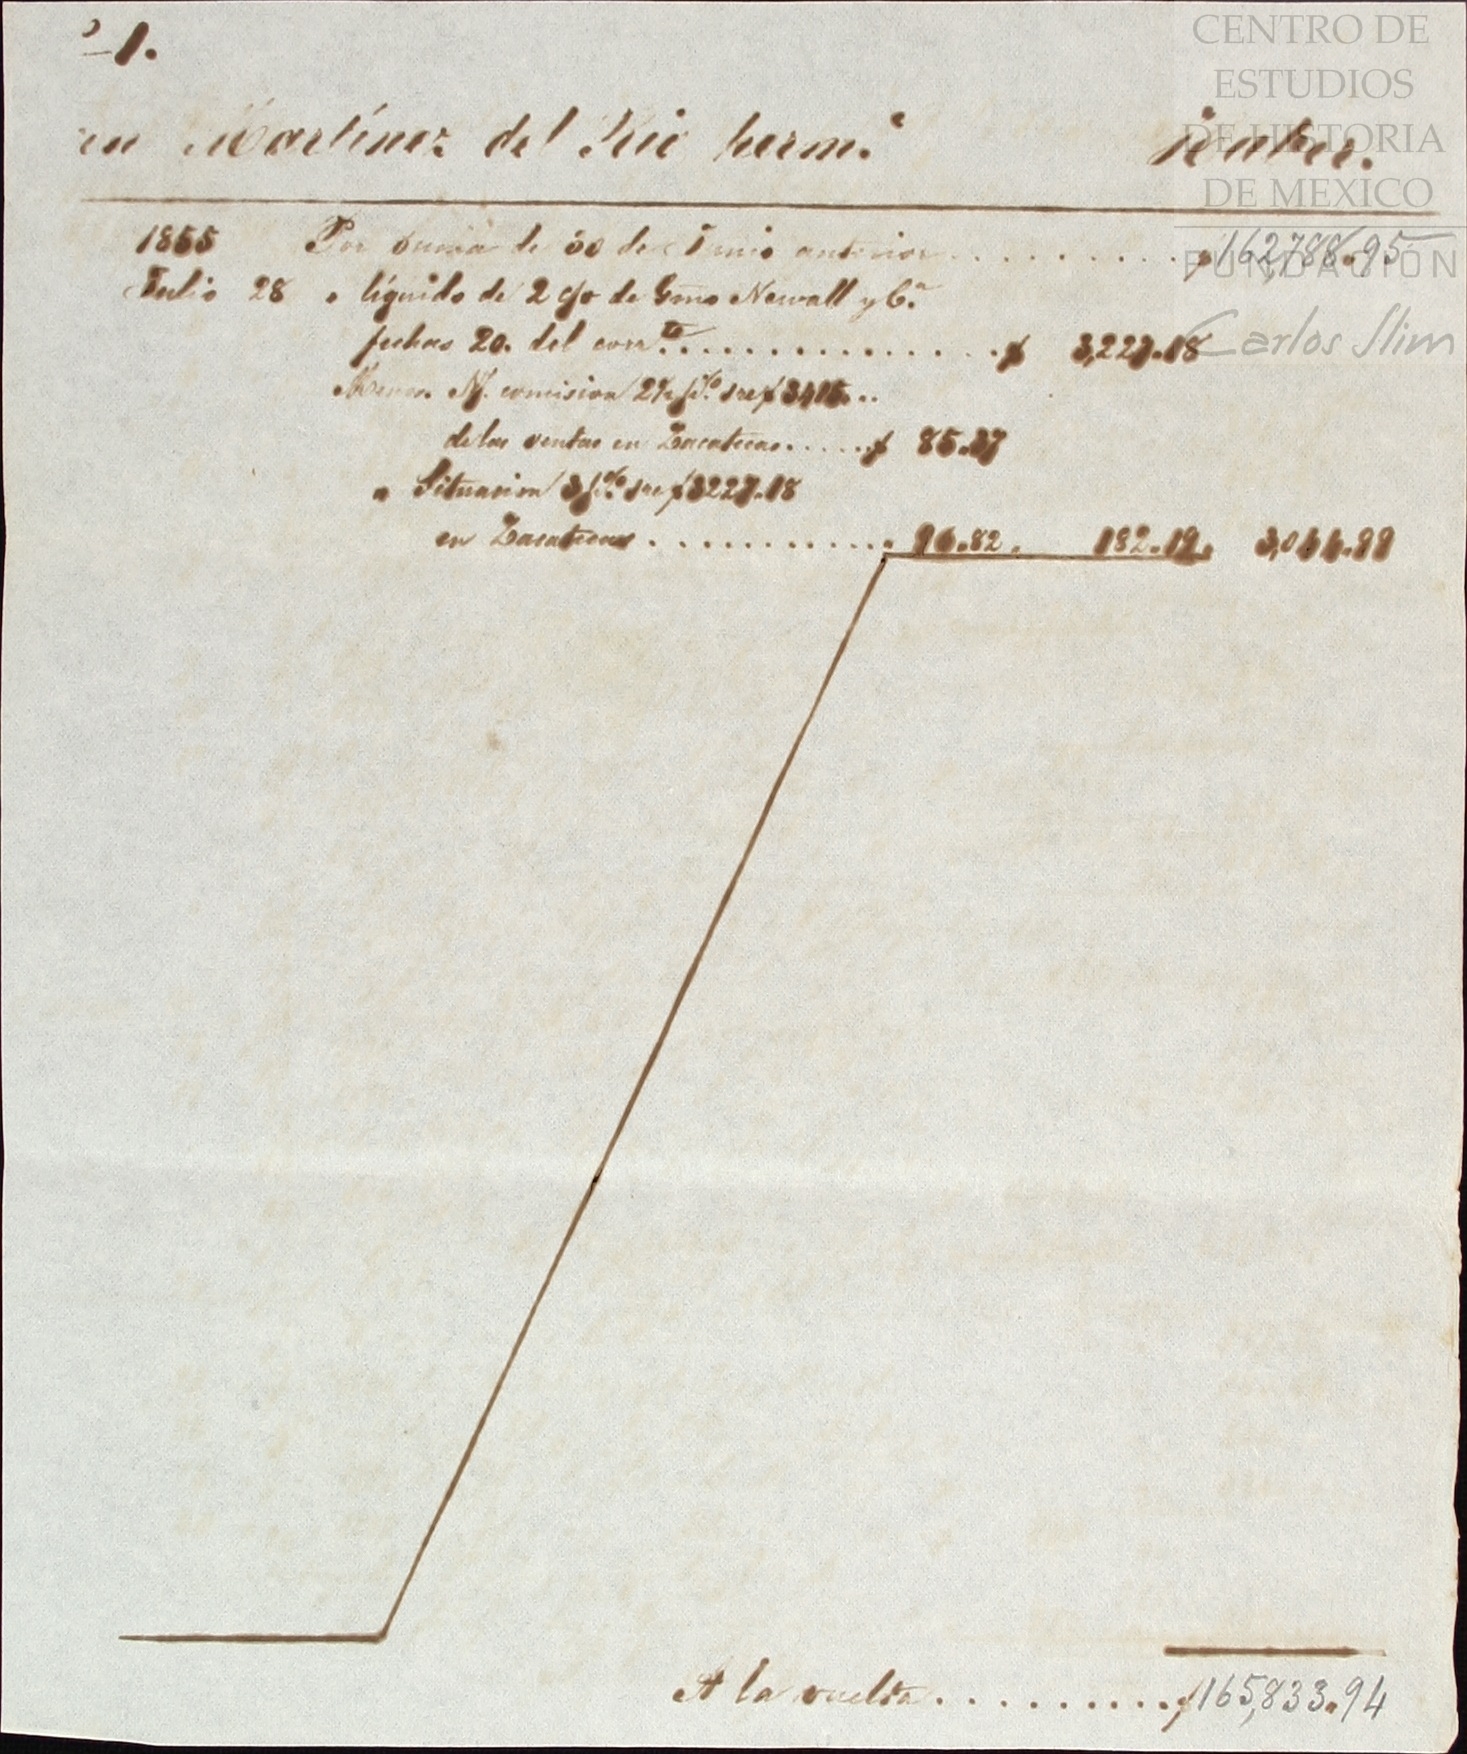 º 1.
en Martínez del Rio herm.ˢ Haber.
1855 Por suma de 30 de Junio anterior . . . . . . . . . . $162,788.95
Julio 28 " líquido de 2 c/v de Gmo Newall y Cª
fechas 20. del corr.te . . . . . . . . . . . . . . . $ 3,227.18
Menos. N/. comision 2½ p% sre $3415. ..
de las ventas en Zacatecas . . . . . $ 85.37
" Situacion 3 p% sre $3227.18
en Zacatecas . . . . . . . . . . . " 96.82. 182.19. 3,044.99
A la vuelta . . . . . . . . . . $165,833.94
CENTRO DE
ESTUDIOS
DE HISTORIA
DE MEXICO
FUNDACIÓN
Carlos Slim